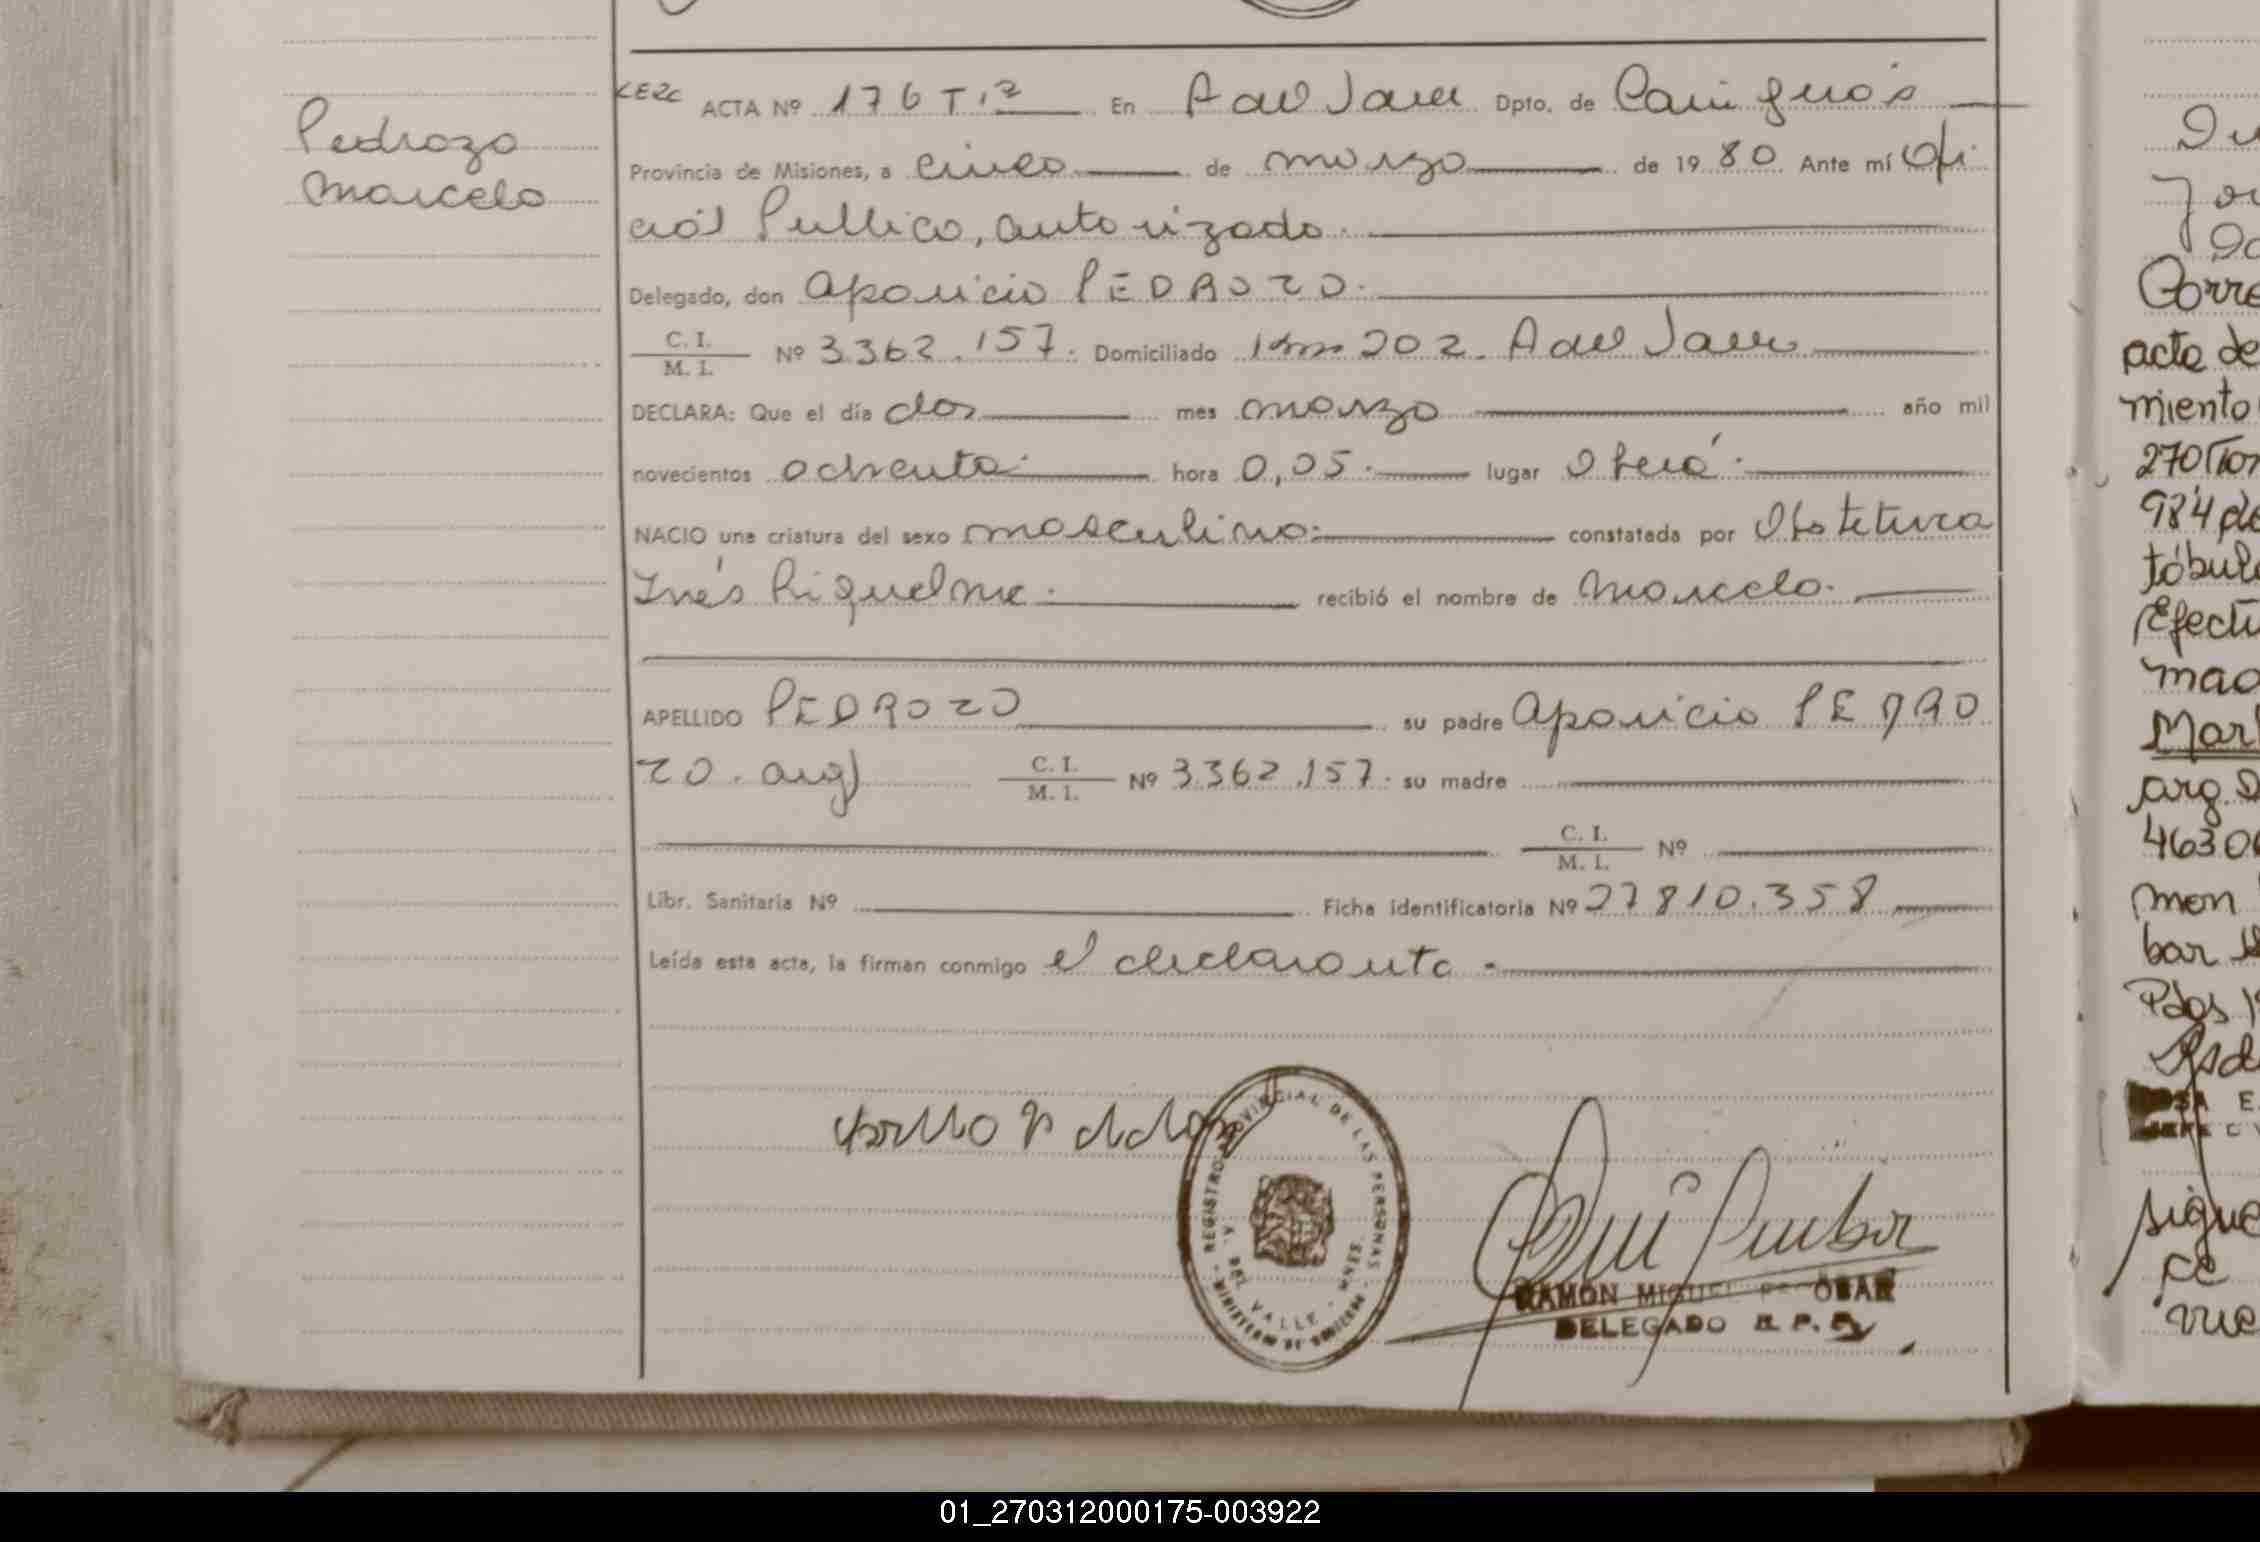 Pedrozo
Marcelo
ACTA Nº 176 T. 1º En A del Valle Dpto. de Cainguás
Provincia de Misiones, a cinco de marzo de 1980 Ante mí Ofi
cial Publico, autorizado.
Delegado, don Aparicio PEDROZO.
C. I.
M. I. Nº 3.362.157. Domiciliado Km 202. A del Valle
DECLARA: Que el día dos mes marzo año mil
novecientos ochenta. hora 0,05. lugar Oberá.
NACIO una criatura del sexo masculino. constatada por Obstetura
Inés Riquelme. recibió el nombre de Marcelo.
APELLIDO PEDROZO su padre Aparicio PEDRO
ZO. arg) C. I.
M. I. Nº 3.362.157. su madre
C. I.
M. I. Nº
Libr. Sanitaria Nº Ficha identificatoria Nº 27810.358
Leída esta acta, la firman conmigo el declarante.
REGISTRO PROVINCIAL DE LAS PERSONAS
DEL VALLE - MNES.
RAMÓN MIGUEL
DELEGADO R. P. P.
Corre
acta de
miento
270 Tom
984 de
tóbulo
Efectu
mad
Mar
arg. D
4630
mon
bar
Pdos 1
sigue
ce
vue
01_270312000175-003922